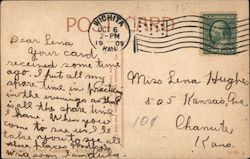 POST CARD
WICHITA
OCT 6
PM
1909
KAN.
Dear Lena
Your card
received some time
ago. I put all my
spare time in practice
in the evenings as that
is all the spare time
I have. When you
come to see us I'll
take you to see all
the places
Miss Lena Hughes
505 Kansas Ave
Chanute,
Kans.
10¢